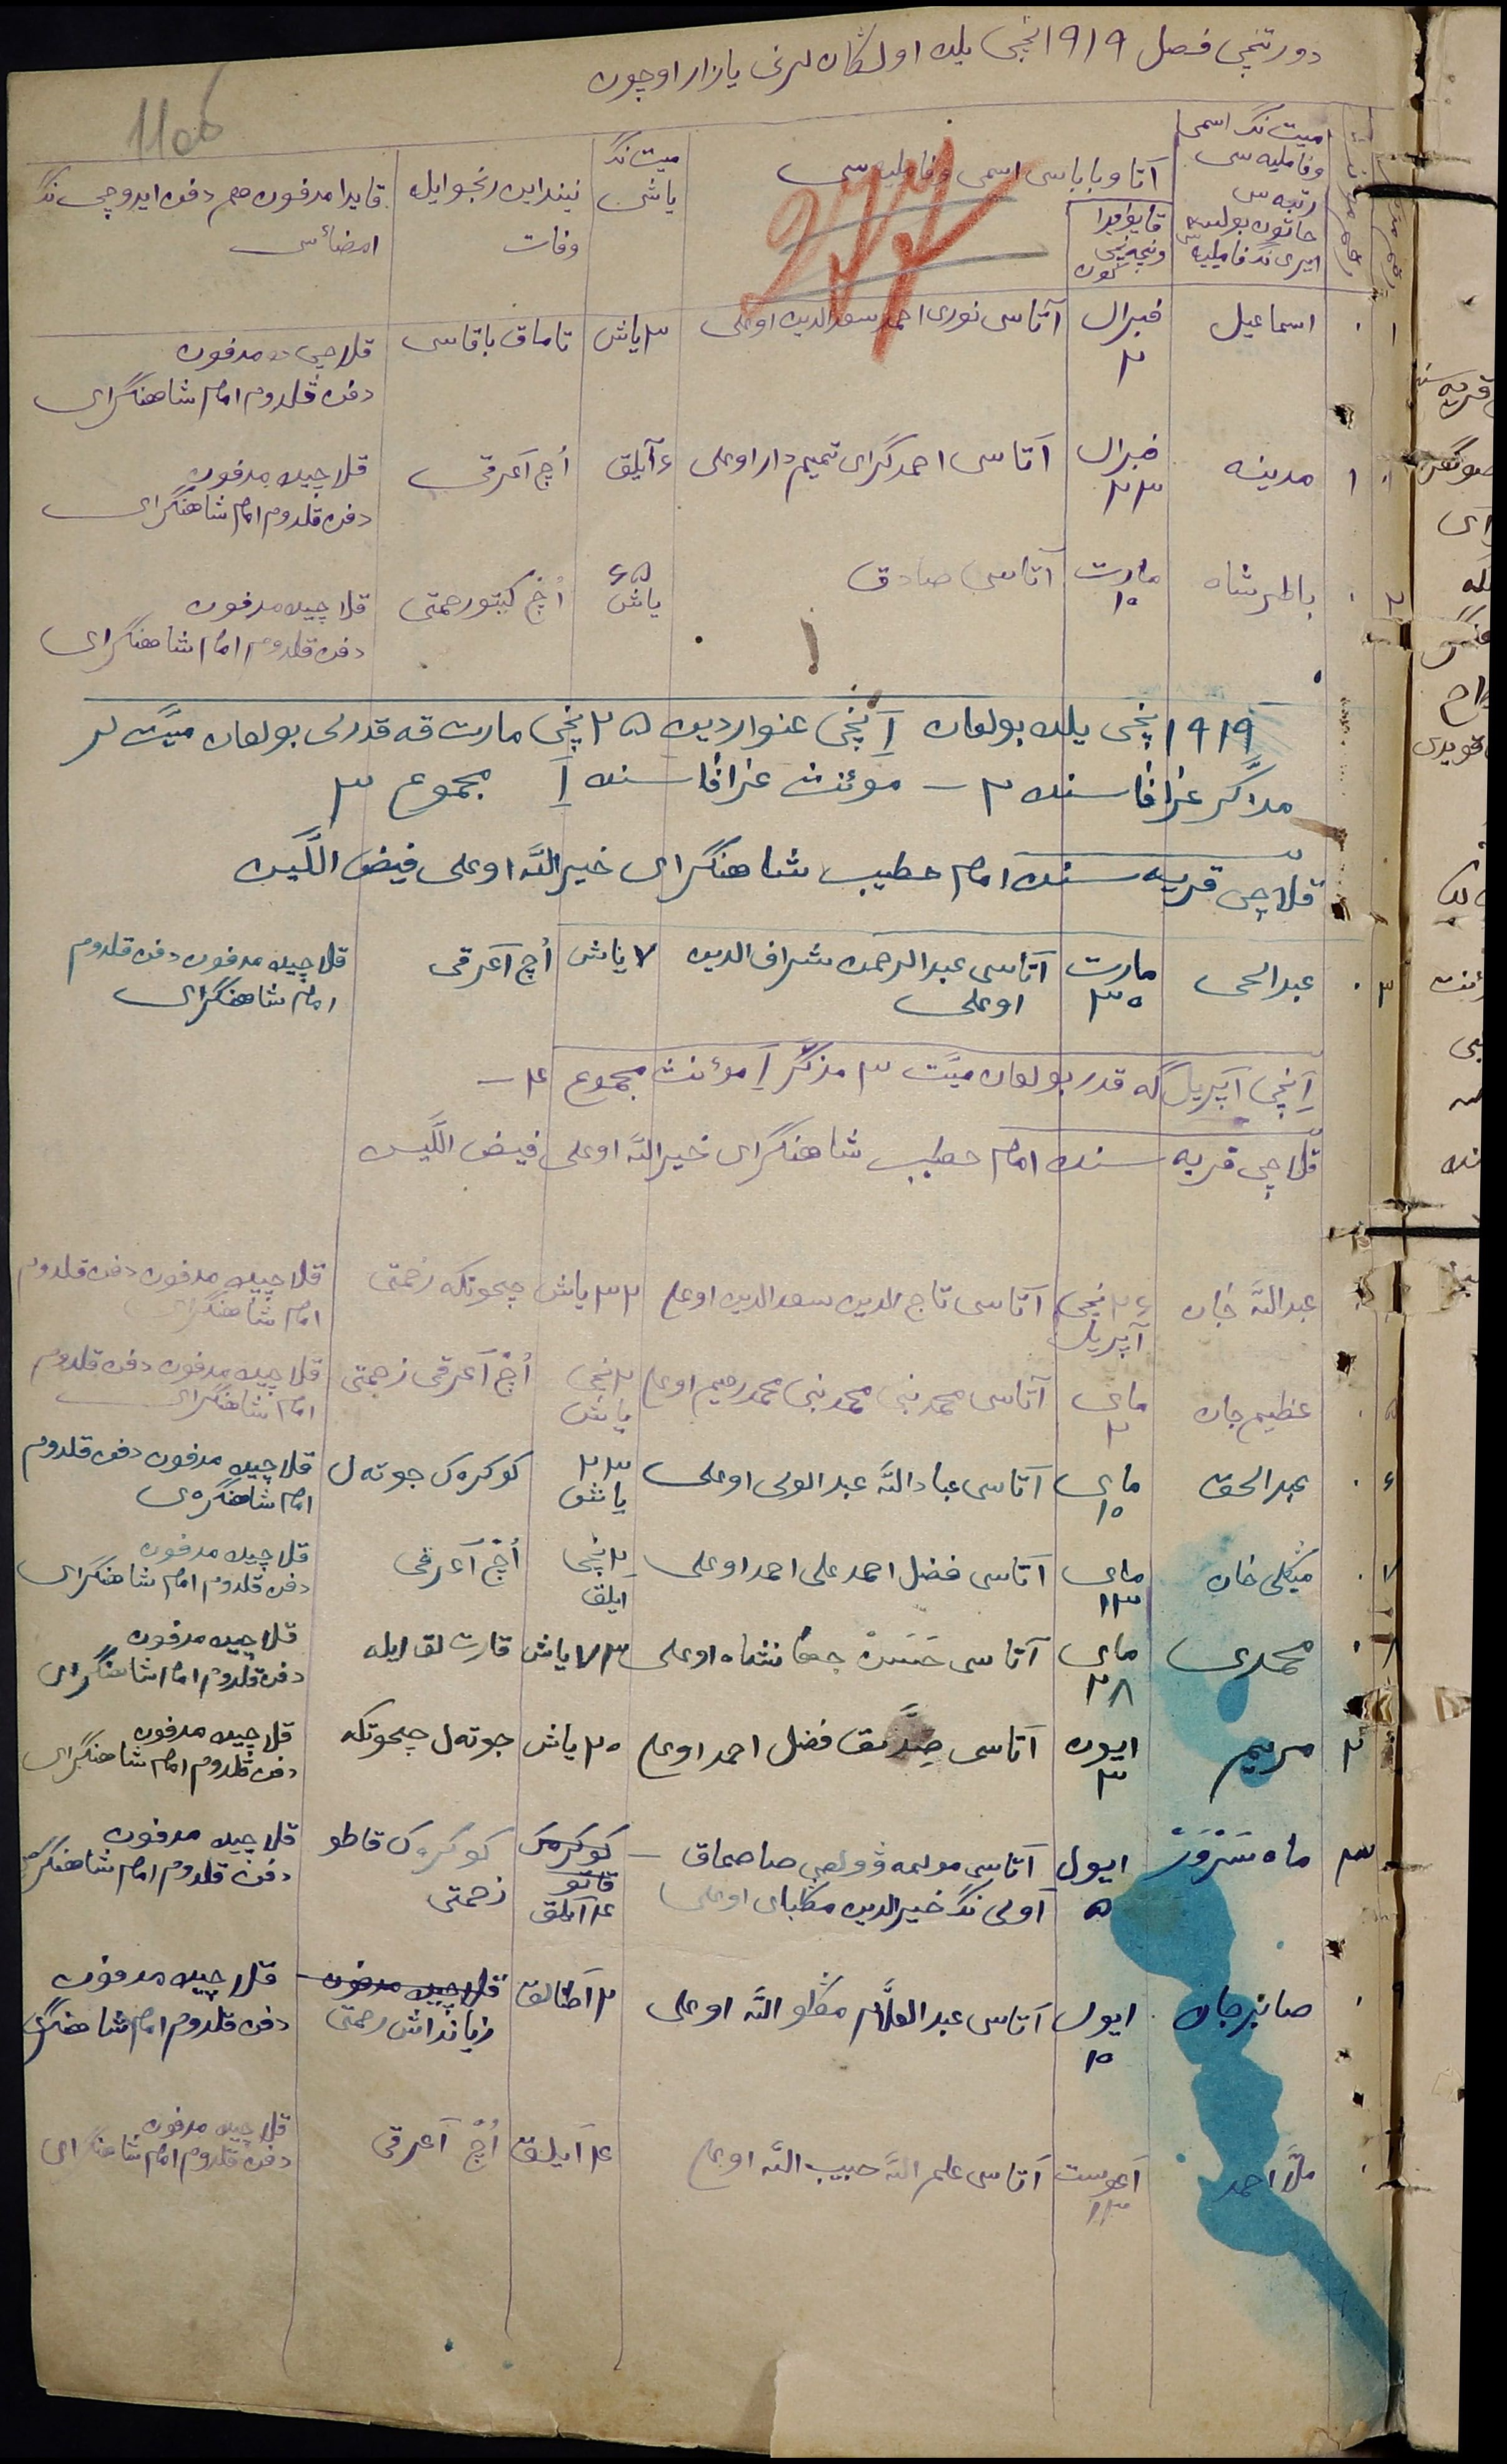 دورتنچی فصل ۱۹۱۹ نچی یلده اولگان لرنی یازار اوچون
1106
277
میت نڭ اسمی
وفامليه سی
رتبه سی
خاتون بولسه
ایری نڭ فامليه سی
آتا وباباسی اسمی وفامليه سی
قایو آیدا
ونیچه نچی
کون
میت نڭ
یاشی
نیندایین رنجو ایله
وفات
قایدا مدفون هم دفن ایدوچی نڭ
امضاسی
۱ اسماعیل
فبرال
۲
آتاسی نوری احمد سعدالدین اوغلی
۳ یاش
تاماق باقاسی
قلاچی ده مدفون
دفن قلدوم امام شاهنگرای
۱ مدینه
فبرال
۲۳
آتاسی احمدگرای تمیم دار اوغلی
۶ آیلق
اُچ آغرقی
قلاچیده مدفون
دفن قلدوم امام شاهنگرای
۲ باطرشاه
مارت
۱۰
آتاسی صادق
۶۵
یاش
اُچ کیتو زحمتی
قلاچیده مدفون
دفن قلدوم امام شاهنگرای
۱۹۱۹ نچی یلده بولغان ۱ نچی غنواردین ۲۵ نچی مارت قه قدرلی بولغان میّت لر
مذاکر غرافاسنده ۲ – موئنث غرافاسنده ۱ مجموع ۳
قلاچی قریه سنده امام خطیب شاهنگرای خیرالله اوغلی فیض اللّین
۳ عبدالحی
مارت
۳۰
آتاسی عبدالرحمن شراف الدین
اوغلی
۷ یاش
اُچ آغرقی
قلاچیده مدفون دفن قلدوم
امام شاهنگرای
۱ نچی آپریل گه قدر بولغان میّت ۳ مذکّر ۱ مؤنث مجموع ۴ –
قلاچی قریه سنده امام خطیب شاهنگرای خیرالله اوغلی فیض اللّین
عبدالله خان
۲۶ نچی
آپریل
آتاسی تاج الدین سعدالدین اوغلی
۳۲ یاش
چحوتکه زحمتی
قلاچیده مدفون دفن قلدوم
امام شاهنگرای
۵ عظیم جان
مای
۲
آتاسی محمد نبی محمد رحیم اوغلی
۲ نچی
یاش
اُچ آغرقی زحمتی
قلاچیده مدفون دفن قلدوم
امام شاهنگرای
۶ عبدالحق
مای
۱۰
آتاسی عبادالله عبدالولی اوغلی
۲۳
یاش
کوکرەک جوتەل
قلاچیده مدفون دفن قلدوم
امام شاهنگرەی
۷ میڭلی خان
مای
۱۳
آتاسی فضل احمد علی احمد اوغلی
۲ نچی
ایلق
اُچ آغرقی
قلاچیده مدفون
دفن قلدوم امام شاهنگرای
۸ محمدی
مای
۲۸
آتاسی حَسَنْ جهانشاه اوغلی
۷۳ یاش
قارت لق ایله
قلاچیده مدفون
دفن قلدوم امام شاهنگرای
۲ مریم
ایون
۳
آتاسی صِدّیق فضل احمد اوغلی
۲۰ یاش
جوتەل چحوتکه
قلاچیده مدفون
دفن قلدوم امام شاهنگرای
۳ ماه سَرْوَرْ
ایول
۵
آولی نڭ خیرالدین اوغلی
۴ آیلق
کوکرەک قاطو
زحمتی
قلاچیده مدفون
دفن قلدوم امام شاهنگرای
صابرجان
ایول
۱۰
آتاسی عبدالعلّام اوغلی
۲ آطنالق
قلاچیده مدفون
زیانداش زحمتی
قلاچیده مدفون
دفن قلدوم امام شاهنگرای
ملّا احمد
آغوست
۱۳
آتاسی علم الله حبیب الله اوغلی
۴ آیلق
اُچ آغرقی
قلاچیده مدفون
دفن قلدوم امام شاهنگرای